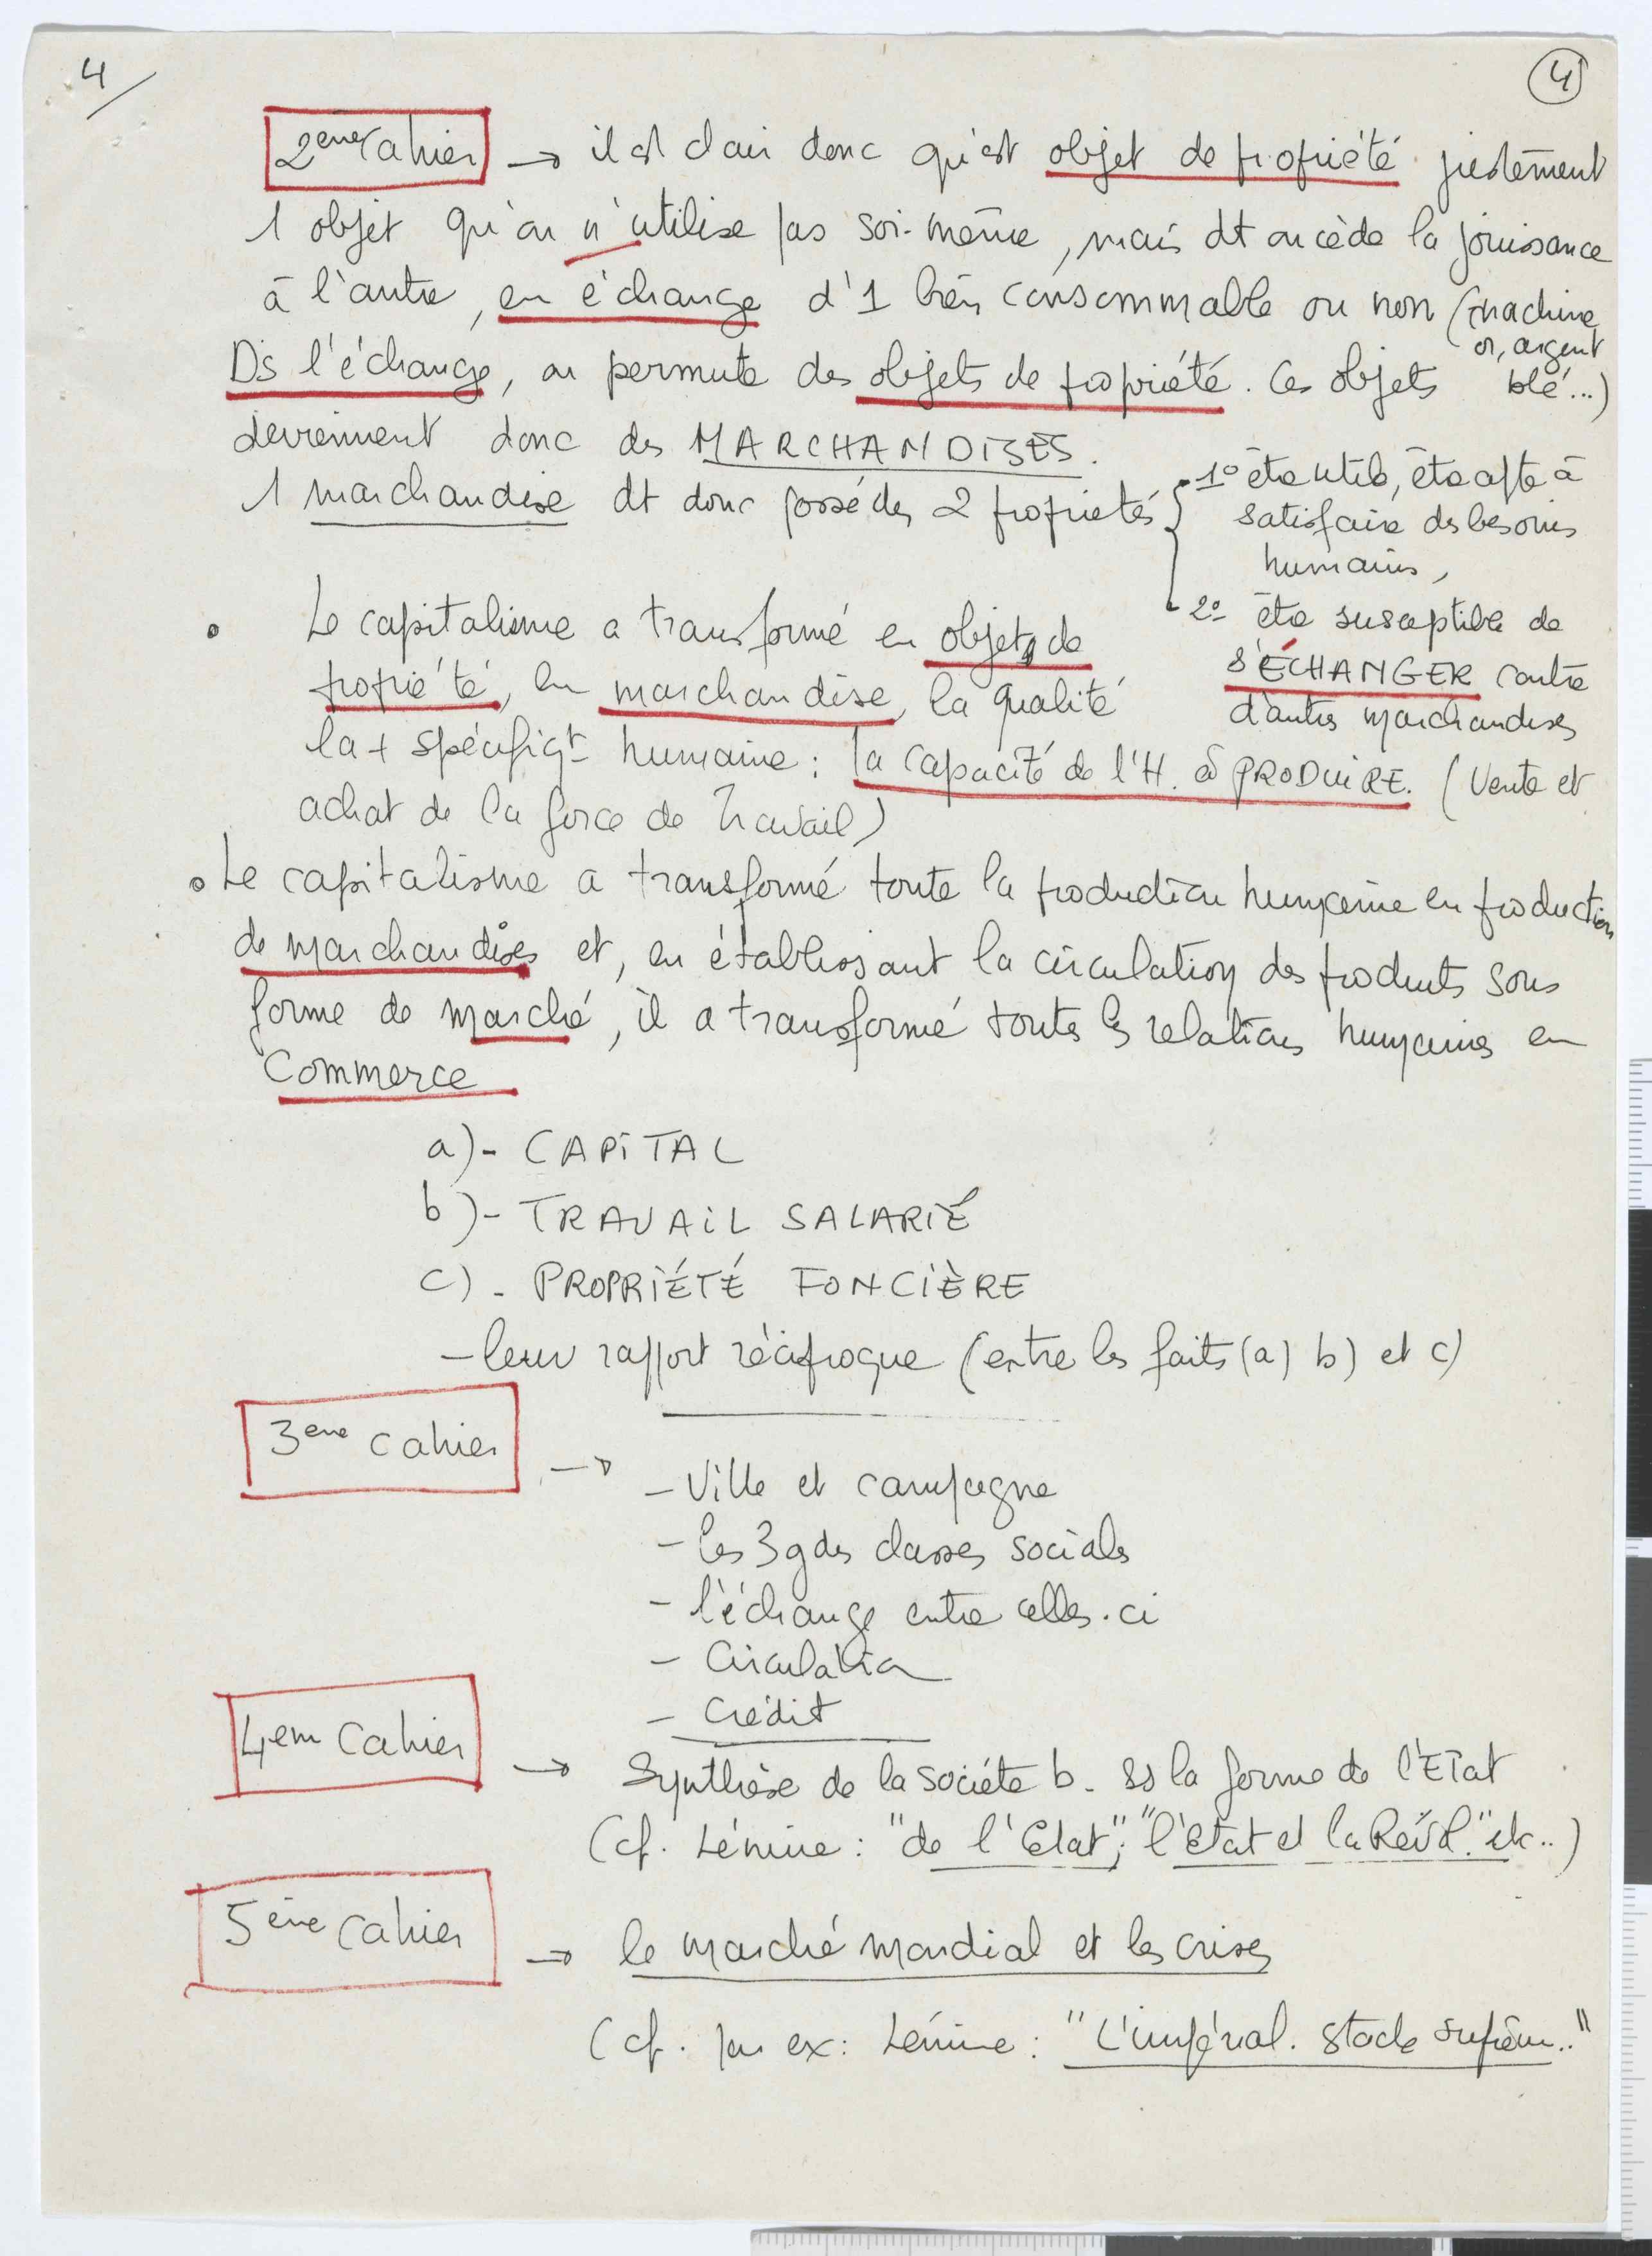 4
4
2ème cahier → il est clair donc qu'est objet de propriété justement
1 objet qu'on n'utilise pas soi-même, mais dt on cède la jouissance
à l'autre, en échange d'1 bien consommable ou non (machine,
or, argent
blé...)
Ds l'échange, on permute des objets de propriété. Ces objets
deviennent donc des MARCHANDISES.
1 marchandise dt donc posséder 2 propriétés
1° être utile, être apte à
satisfaire des besoins
humains,
2° être susceptible de
S'ÉCHANGER contre
d'autres marchandises
Le capitalisme a transformé en objet de
propriété, en marchandise, la qualité
la + spécifiqt humaine : la capacité de l'H. à PRODUIRE. (Vente et
achat de la force de travail)
Le capitalisme a transformé toute la production humaine en production
de marchandises et, en établissant la circulation des produits sous
forme de marché, il a transformé toutes les relations humaines en
Commerce
a)- CAPITAL
b)- TRAVAIL SALARIÉ
c)- PROPRIÉTÉ FONCIÈRE
- leur rapport réciproque (entre les faits (a) b) et c)
3ème cahier →
- Ville et campagne
- les 3 gdes classes sociales
- l'échange entre celles-ci
- Circulation
- Crédit
4em Cahier → Synthèse de la société b. ss la forme de l'ETat
(cf. Lénine : "de l'Etat"; "l'Etat et la Révol." etc..)
5ème Cahier → le marché mondial et les crises
(cf. par ex: Lénine : "L'impérial. stade suprêm.."